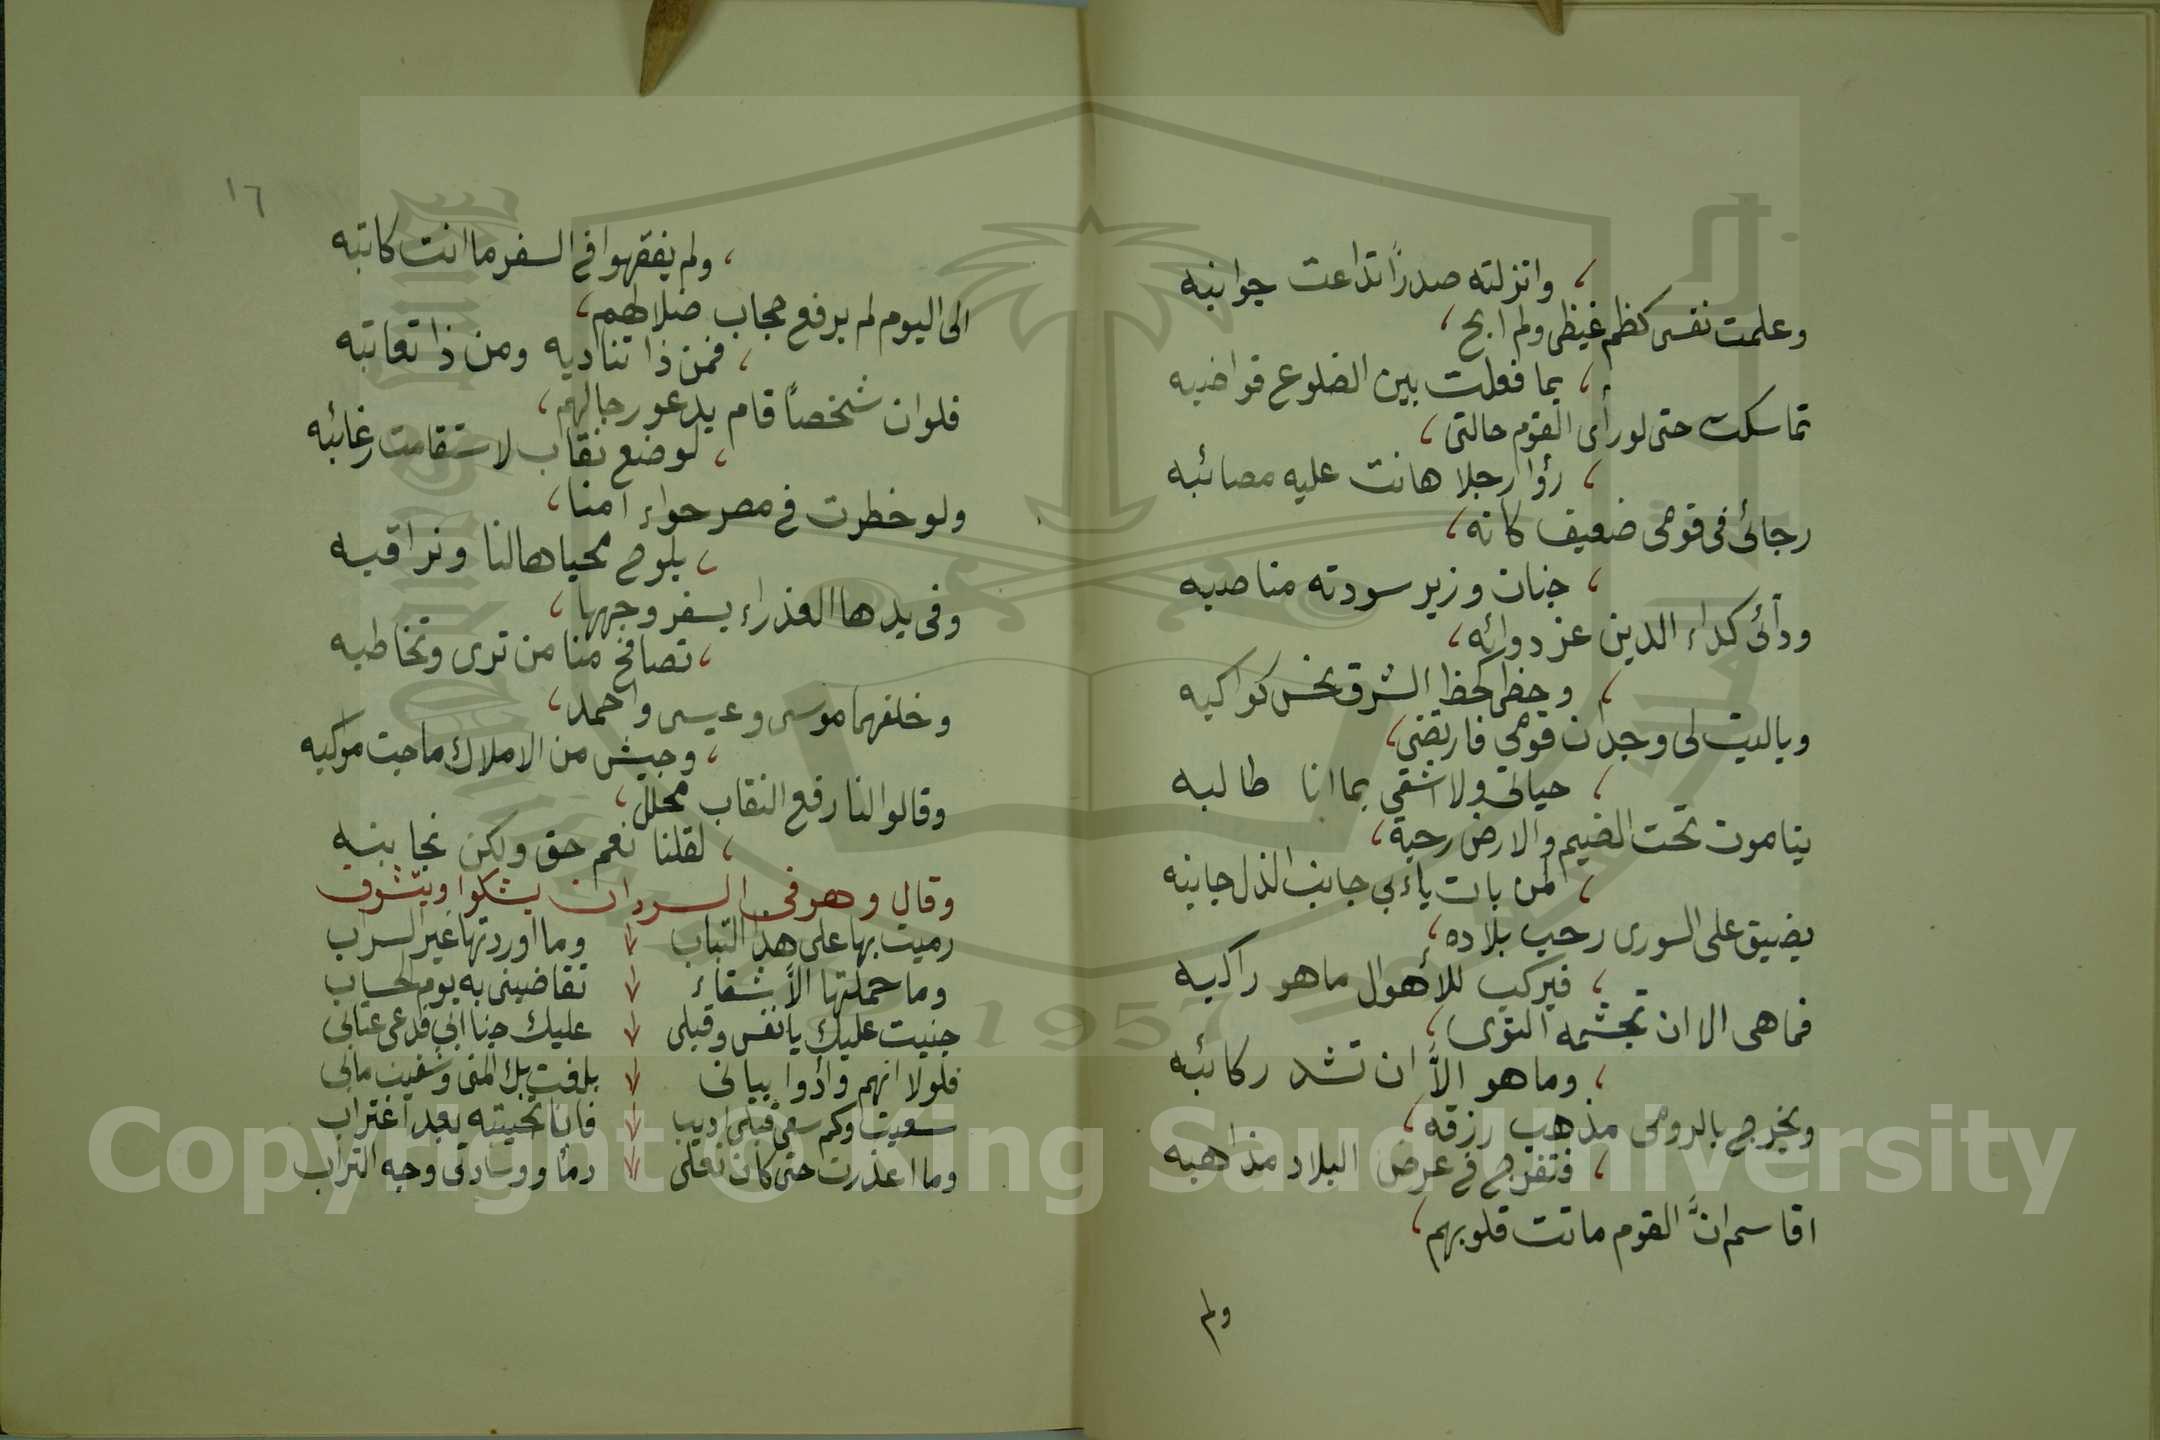 وانزلته صدرًا تداعت جوانبه
وعلمت نفسى كظم غيظى ولم ابح
بما فعلت بين الضلوع قواضبه
تماسكت حتى لو رأى القوم حالتى
رؤا رجلا هانت عليه مصائبه
رجائى فى قومى ضعيف كانه
جنان وزير سودته مناصبه
ودآئى كداء الدين عز دوائه
وحظى كحظ الشرق نحس كواكبه
وياليت لى وجدان قومى فارتضى
حياتى ولا اشقى بما انا طالبه
ينامون تحت الضيم والارض رحبة
لمن بات يأبى جانب الذل جانبه
يضيق على السورى رحب بلاده
فيركب للأهوال ماهو راكبه
فماهى الا ان تجشمه النوى
وماهو الاَّ ان تشد ركائبه
ويخرج بالرومى مذهب رزقه
فتفرج فى عرض البلاد مذاهبه
اقاسم انَّ القوم ماتت قلوبهم
ولم
١٦
ولم يفقهوا فى السفر ما انت كاتبه
الى اليوم لم يرفع حجاب ضلالهم
فمن ذا تناديه ومن ذا تعاتبه
فلوان شخصاً قام يدعو رجالهم
لوضع نقاب لاستقامت رغائبه
ولو خطرت فى مصر حواء امنا
يلوح محياها لنا ونراقبه
وفى يدها العذراء يسفر وجهها
تصافح منا من ترى وتخاطبه
وخلفهما موسى وعيسى واحمد
وجيش من الاملاك ماجت مواكبه
وقالوا لنا رفع النقاب محلل
لقلنا نعم حق ولكن نجانبه
وقال وهو فى السودان يشكوا ويتشوق
رميت بها على هذا التباب وما اوردتها غير السراب
وما حملتها الاَّ شقاء تقاضينى به يوم الحساب
جنيت عليك يا نفسى وقبلى عليك جنا ابى فدعى عتابى
فلولا انهم وأدوا بيانى بلغت بك المنى وشفيت مابى
سعيت وكم سعى قبلى اديب فاب بخيبته بعد اغتراب
وما اعذرت حتى كان نعلى دمأ ووسادتى وجه التراب
Copyright © King Saud University
1957